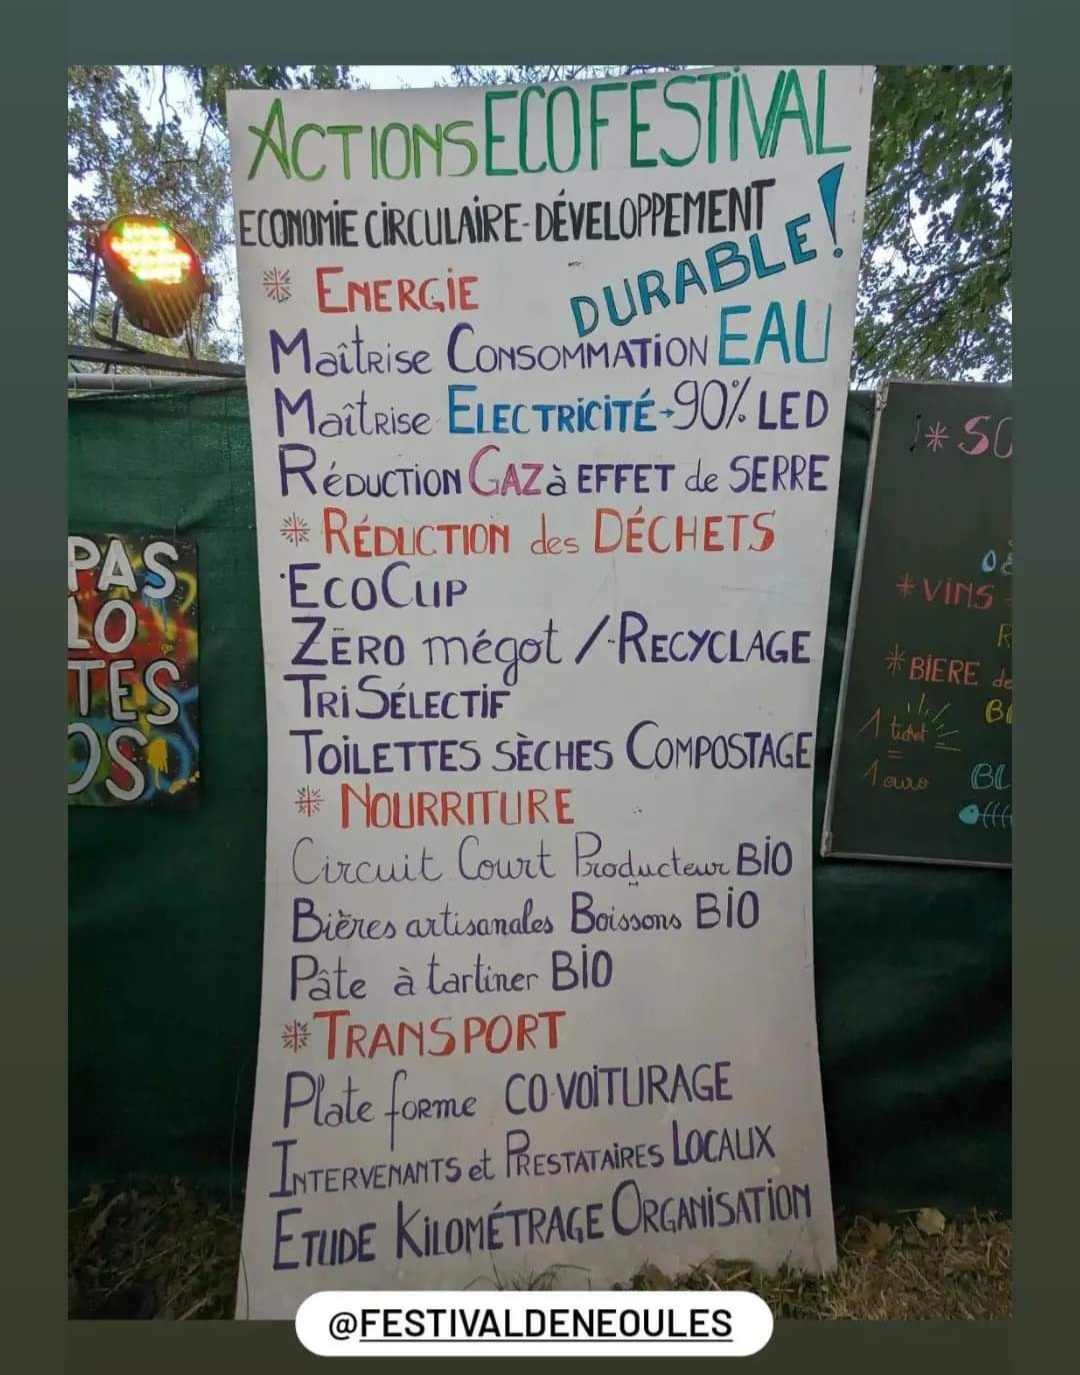 ACTIONS ECOFESTIVAL
ECONOMIE CIRCULAIRE-DÉVELOPPEMENT
DURABLE!
* ENERGIE
Maîtrise Consommation EAU
Maîtrise Electricité→90% LED
Réduction GAZ à EFFET de SERRE
* RÉDUCTION des DÉCHETS
EcoCup
ZËRO mégot /-RECYCLAGE
TRI SÉLECTIF
TOILETTES SÈCHES COMPOSTAGE
* NOURRITURE
Circuit Court Producteur BIO
Bières artisanales Boissons BIO
Pâte à tartiner BIO
* TRANSPORT
Plate forme CO-VOITURAGE
INTERVENANTS et PRESTATAIRES LOCAUX
ETUDE KILOMÉTRAGE ORGANISATION
PAS
LO
TES
OS
* SO
* VINS
* BIERE de
1 ticket
=
1 euro
BL
@FESTIVALDENEOULES